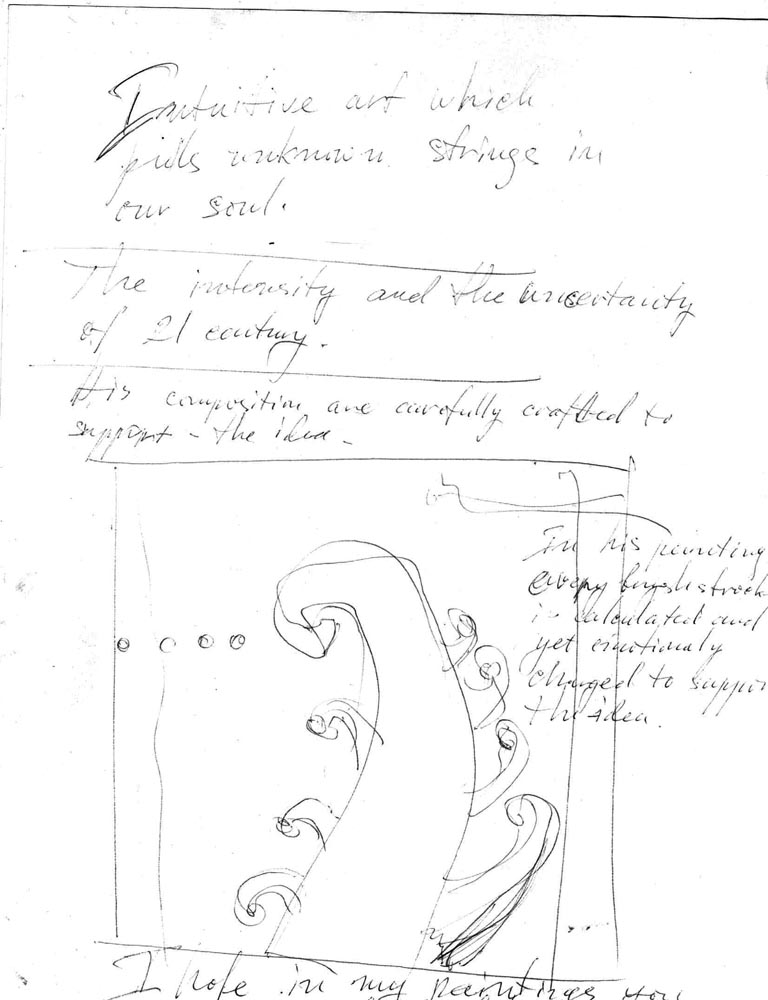 Intuitive art which
pulls unknown strings in
our soul.
The intensity and the uncertainty
of 21 century.
His composition are carefully crafted to
support - the idea -
In his painting
every brushstrock
is calculated and
yet emotionaly
charged to suppor
the idea.
I hope in my paintings you